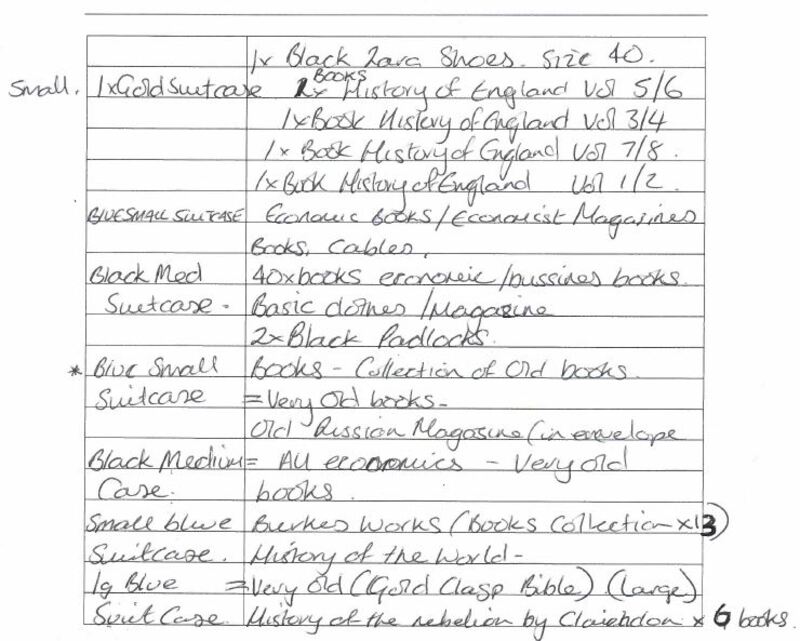 1x Black Zara Shoes. Size 40.
Small. 1xGold Suitcase 1x Books History of England Vol 5/6
1xBook History of England Vol 3/4
1x Book History of England Vol 7/8.
1xBook History of England Vol 1/2.
BLUE SMALL SUITCASE Economic Books/Economist Magazines
Books, Cables,
Black Med 40xbooks economic/bussines books.
Suitcase - Basic clothes/Magazine
2xBlack Padlocks.
* Blue Small Books - Collection of Old books.
Suitcase =Very Old books-
Old Russian Magasine (in envelope
Black Medium = All economics - Very old
Case. books.
Small blue Burkes Works (Books Collection x13)
Suitcase. History of the World-
1g Blue =Very old (Gold Clasp Bible) (Large)
Suit Case. History of the rebelion by Clarehdon x 6 books.